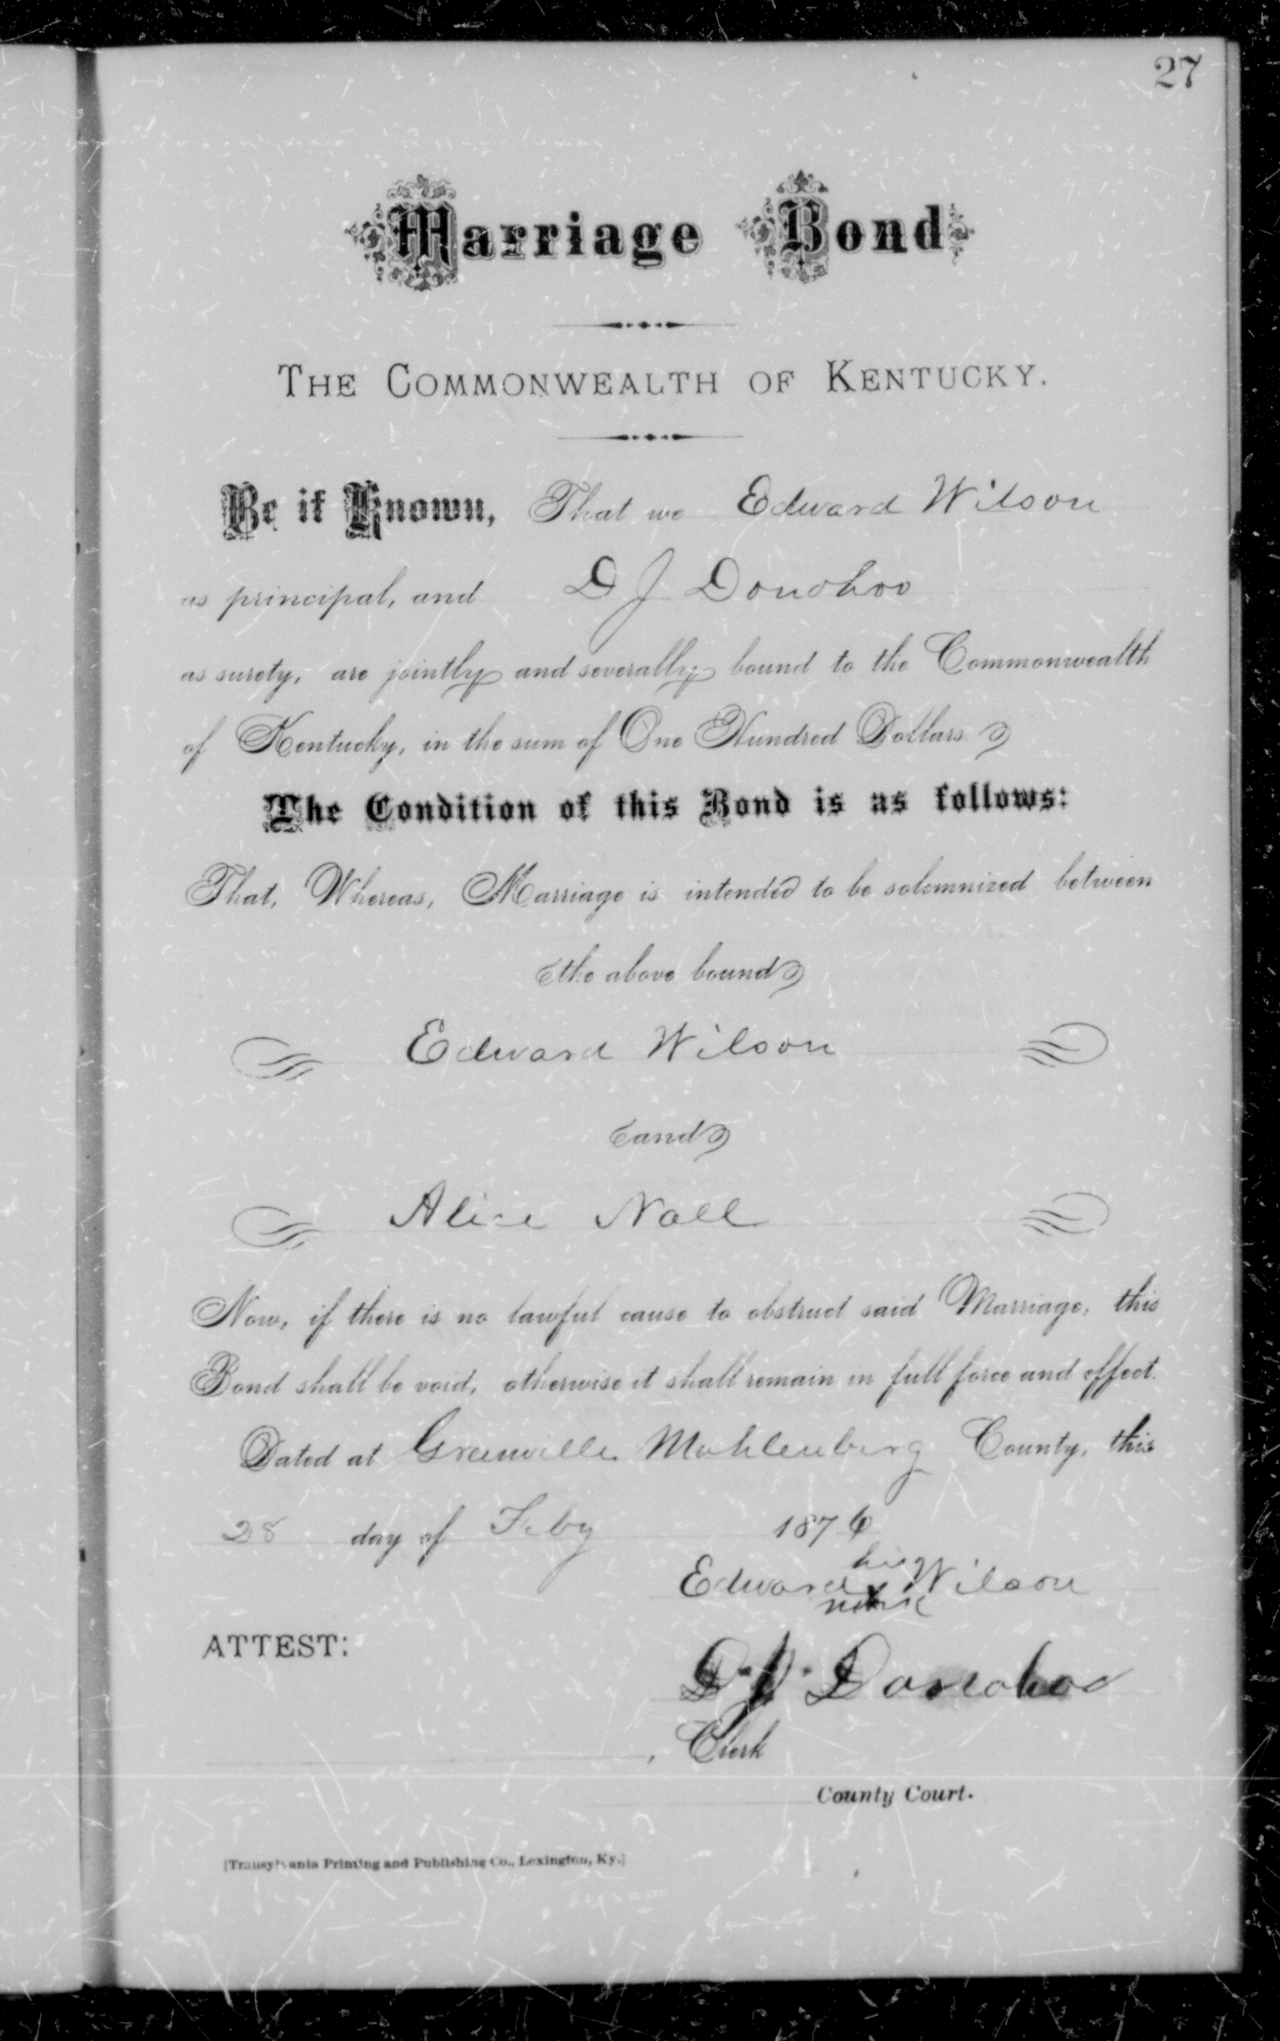 27
Marriage Bond
THE COMMONWEALTH OF KENTUCKY.
Be it Known, That we Edward Wilson
as principal, and D J Donohoo
as surety, are jointly and severally bound to the Commonwealth
of Kentucky, in the sum of One Hundred Dollars
The Condition of this Bond is as follows:
That, Whereas, Marriage is intended to be solemnized between
the above bound
Edward Wilson
and
Alice Noll
Now, if there is no lawful cause to obstruct said Marriage, this
Bond shall be void, otherwise it shall remain in full force and effect.
Dated at Greenville Muhlenberg County, this
28 day of Feby 1876
his
Edward x Wilson
mark
ATTEST:
D. J. Donohoo
, Clerk
County Court.
[Transylvania Printing and Publishing Co., Lexington, Ky.]